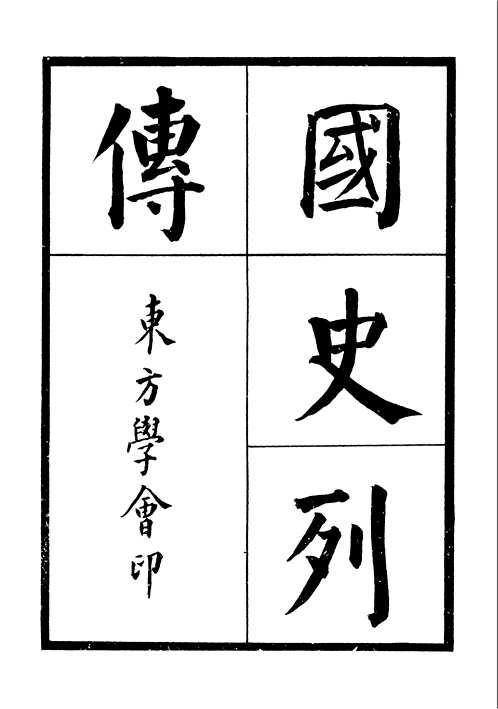 國史列
傳
東方學會印